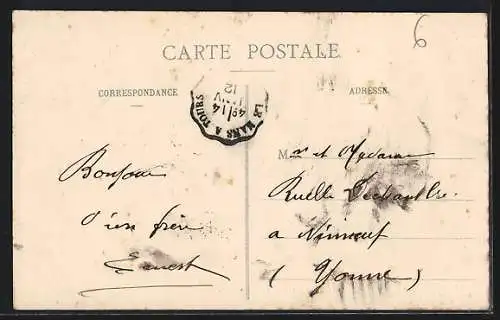 6
CARTE POSTALE
CORRESPONDANCE
ADRESSE
LE MANS A TOURS
14
JANV
12
Bonjour
d'un frère
Ernest
M r et Madame
Ruelle
a
(Yonne)